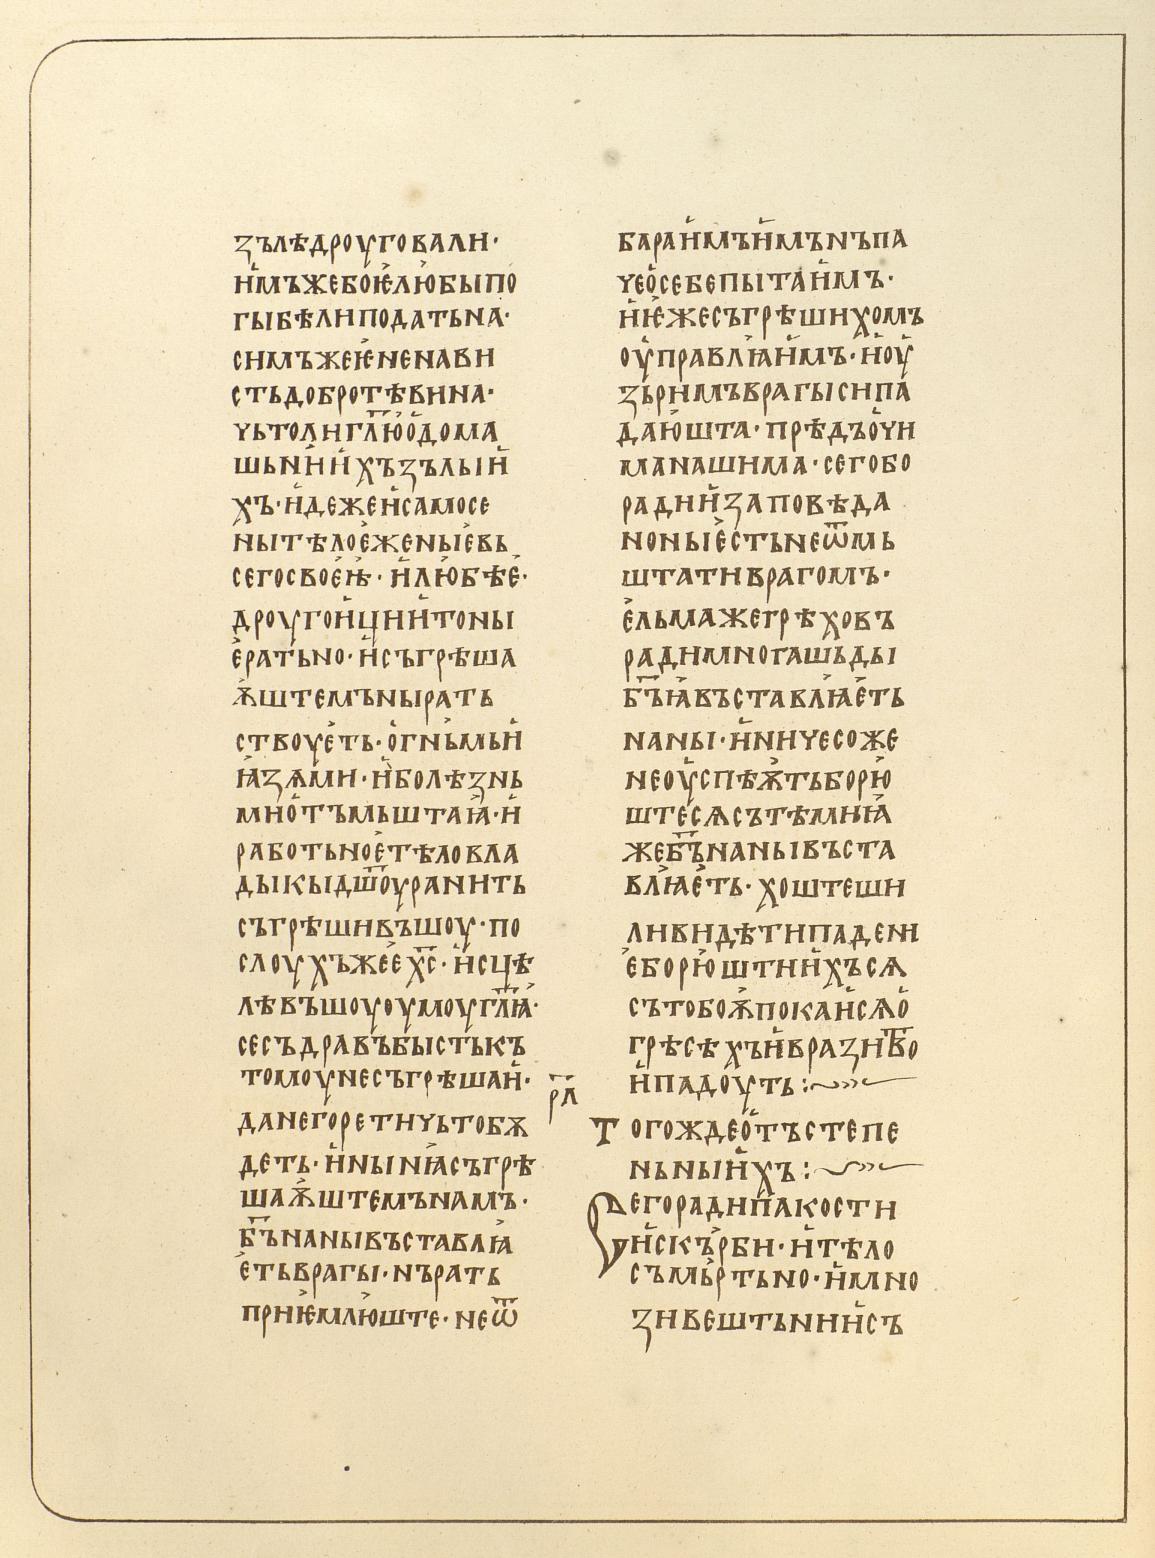 зълѣдроуговали·
имъжебоѥлюбыпо
гыбѣлиподатьна·
симъжеѥненави
стьдобротѣвина·
чьтолигл҃юодома
шьниихъзълыи
хъ·идежеисамосе
нытѣлоеженыевь
сегосвоеѩ·илюбѣе·
дроугоицниитоны
ератьно·исъгрѣша
ѭштемънырать
ствоуеть·огньмьи
ꙗзѧми·иболѣзнь
мнотъмьштаꙗ·и
работьноетѣловла
дыкыдш҃оуранить
съгрѣшивъшоу·по
слоухъжеех҃с·исцѣ
лѣвъшоуоумоугл҃ꙗ·
сесъдравъбыстькъ
томоунесъгрѣшаи·
данегоретичьтобѫ
деть·инынꙗсъгрѣ
шаѭштемънамъ·
б҃ънанывъставлꙗ
етьврагы·нърать
приѥмлюште·неѿ
бараимъимънъпа
чеосебепытаимъ·
иѥжесъгрѣшихомъ
оуправлꙗимъ·иоу
зьримъврагысипа
даюшта·прѣдъоуи
манашима·сегобо
радиизаповѣда
ноныестьнеѿмь
штативрагомъ·
ельмажегрѣховъ
радимногашьды
б҃ъꙗвъставлꙗеть
наны·иничесоже
неоуспѣѭтьборю
штесѧсътѣмиꙗ
жеб҃ънанывъста
влꙗеть·хоштеши
ливидѣтипадени
еборюштиихъсѧ
сътобоѭпокаисѧо
грѣсѣхъивразитво
ипадоуть:~
рл҃
Тогождеотъстепе
ньныихъ:~
Сегорадипакости
искърби·итѣло
съмьртьно·имно
зивештьниисъ